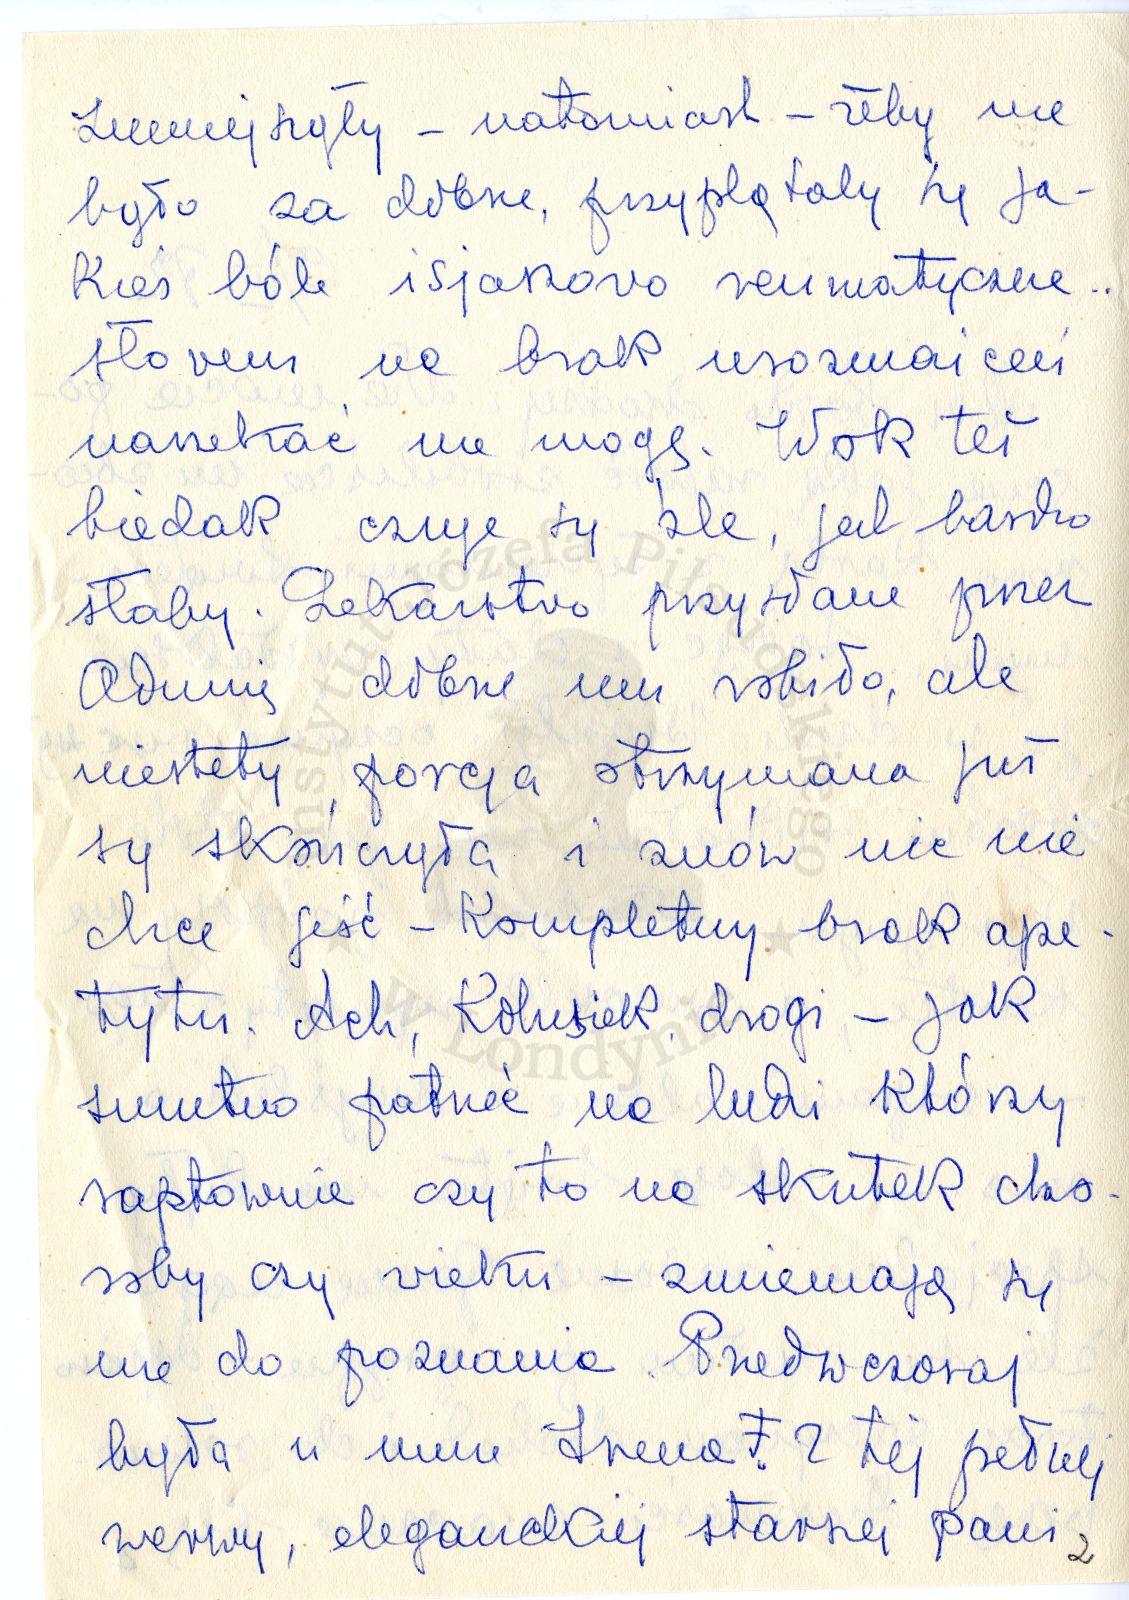 zmniejszyły – natomiast – żeby nie
było za dobrze, przyplątały się ja-
kieś bóle isjasowo reumatyczne..
słowem na brak urozmaiceń
narzekać nie mogę. Wok też
biedak czuje się źle, jest bardzo
słaby. Lekarstwo przysłane przez
Adunię dobrze mu robiło, ale
niestety, porcja otrzymana już
się skończyła i znów nic nie
chce jeść – Kompletny brak ape-
tytu. Ach, Kolusiek drogi – jak
smutno patrzeć na ludzi którzy
raptownie czy to na skutek cho-
roby czy wieku – zmieniają się
nie do poznania. Przedwczoraj
była u mnie Irena F. Z tej pełnej
werwy, eleganckiej starszej pani
2
Instytut Józefa Piłsudskiego
w Londynie